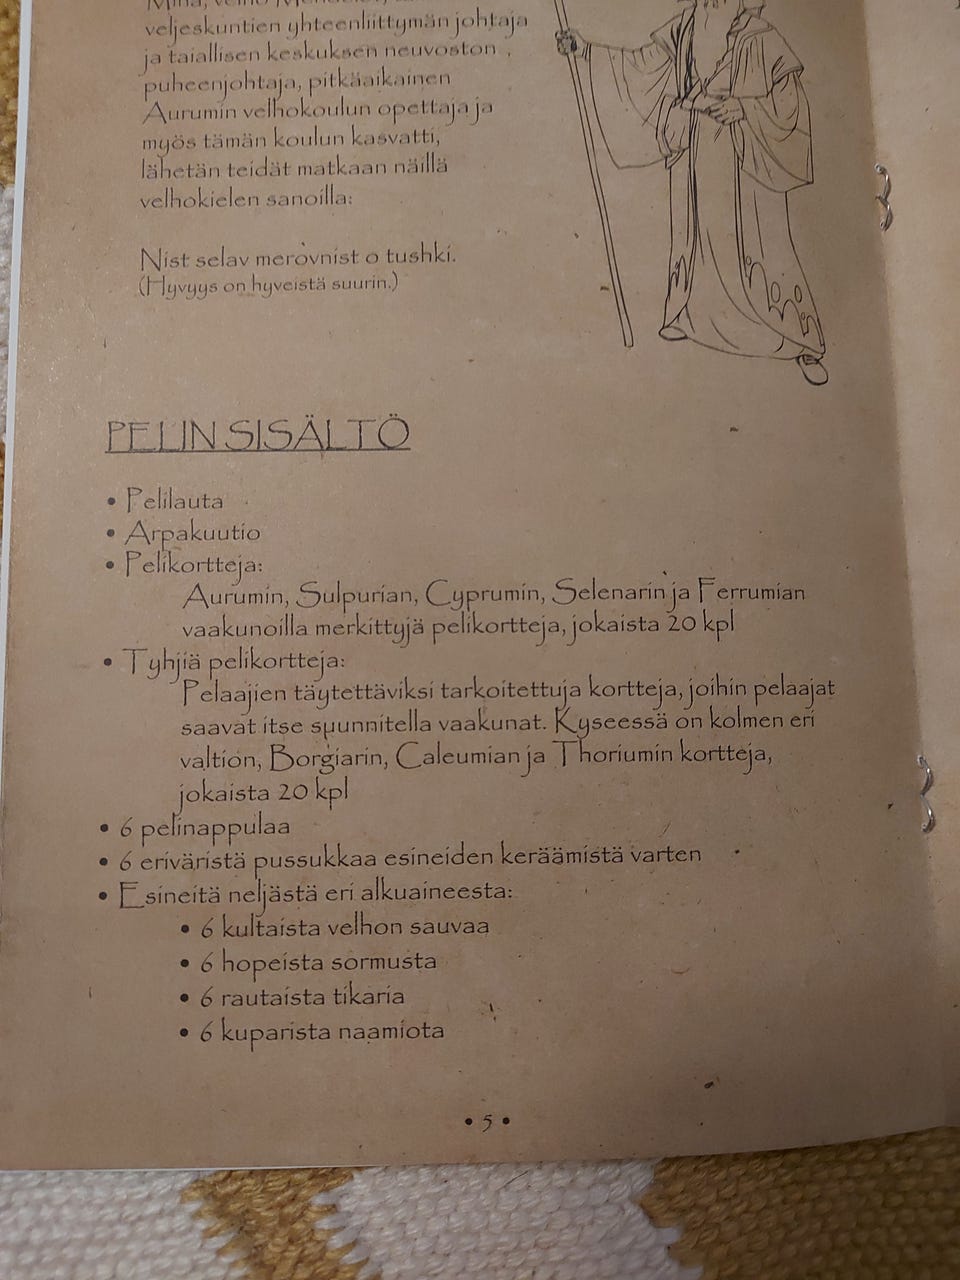 veljeskuntien yhteenliittymän johtaja
ja taiallisen keskuksen neuvoston,
puheenjohtaja, pitkäaikainen
Aurumin velhokoulun opettaja ja
myös tämän koulun kasvatti,
lähetän teidät matkaan näillä
velhokielen sanoilla:
Nist selav merovnist o tushki.
(Hyvyys on hyveistä suurin.)
PELIN SISÄLTÖ
• Pelilauta
• Arpakuutio
• Pelikortteja:
Aurumin, Sulpurian, Cyprumin, Selenarin ja Ferrumian
vaakunoilla merkittyjä pelikortteja, jokaista 20 kpl
• Tyhjiä pelikortteja:
Pelaajien täytettäviksi tarkoitettuja kortteja, joihin pelaajat
saavat itse suunnitella vaakunat. Kyseessä on kolmen eri
valtion, Borgiarin, Caleumian ja Thoriumin kortteja,
jokaista 20 kpl
• 6 pelinappulaa
• 6 eriväristä pussukkaa esineiden keräämistä varten
• Esineitä neljästä eri alkuaineesta:
• 6 kultaista velhon sauvaa
• 6 hopeista sormusta
• 6 rautaista tikaria
• 6 kuparista naamiota
• 5 •